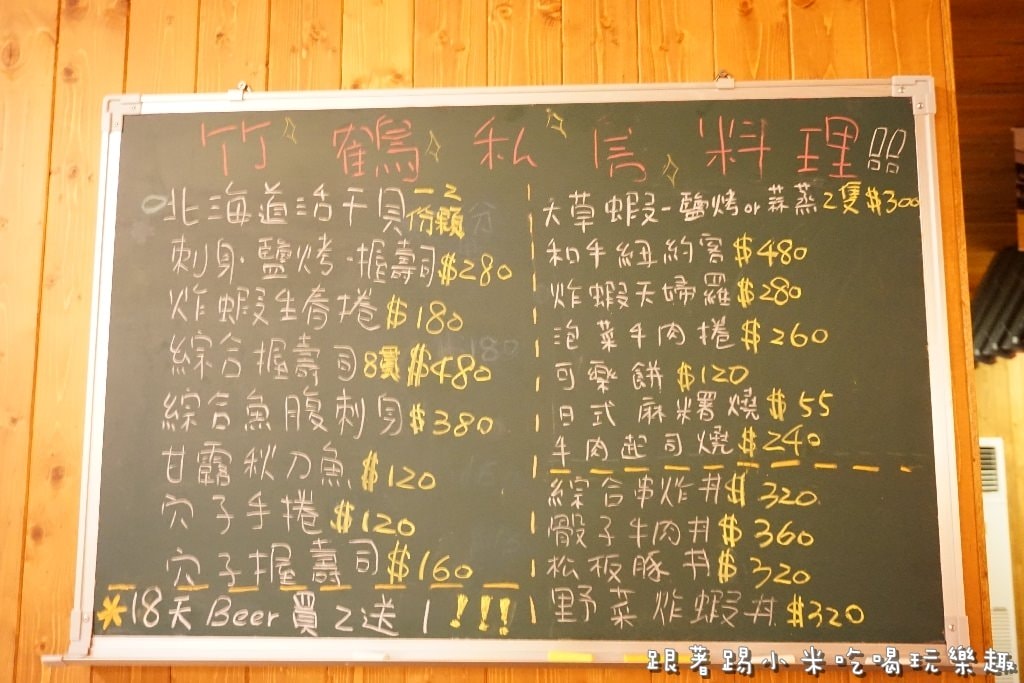 竹鶴私房料理
北海道活干貝一份2顆
刺身.鹽烤.握壽司$280
炸蝦生春捲$180
綜合握壽司8貫$480
綜合魚腹刺身$380
甘露秋刀魚$120
穴子手捲$120
穴子握壽司$160
*18天Beer買2送1!!!
大草蝦-鹽烤or蒜蒸2隻$300
和牛紐約客$480
炸蝦天婦羅$280
泡菜牛肉捲$260
可樂餅$120
日式麻糬燒$55
牛肉起司燒$240
綜合串炸丼$320
骰子牛肉丼$360
松板豚丼$320
野菜炸蝦丼$320
跟著踢小米吃喝玩樂趣